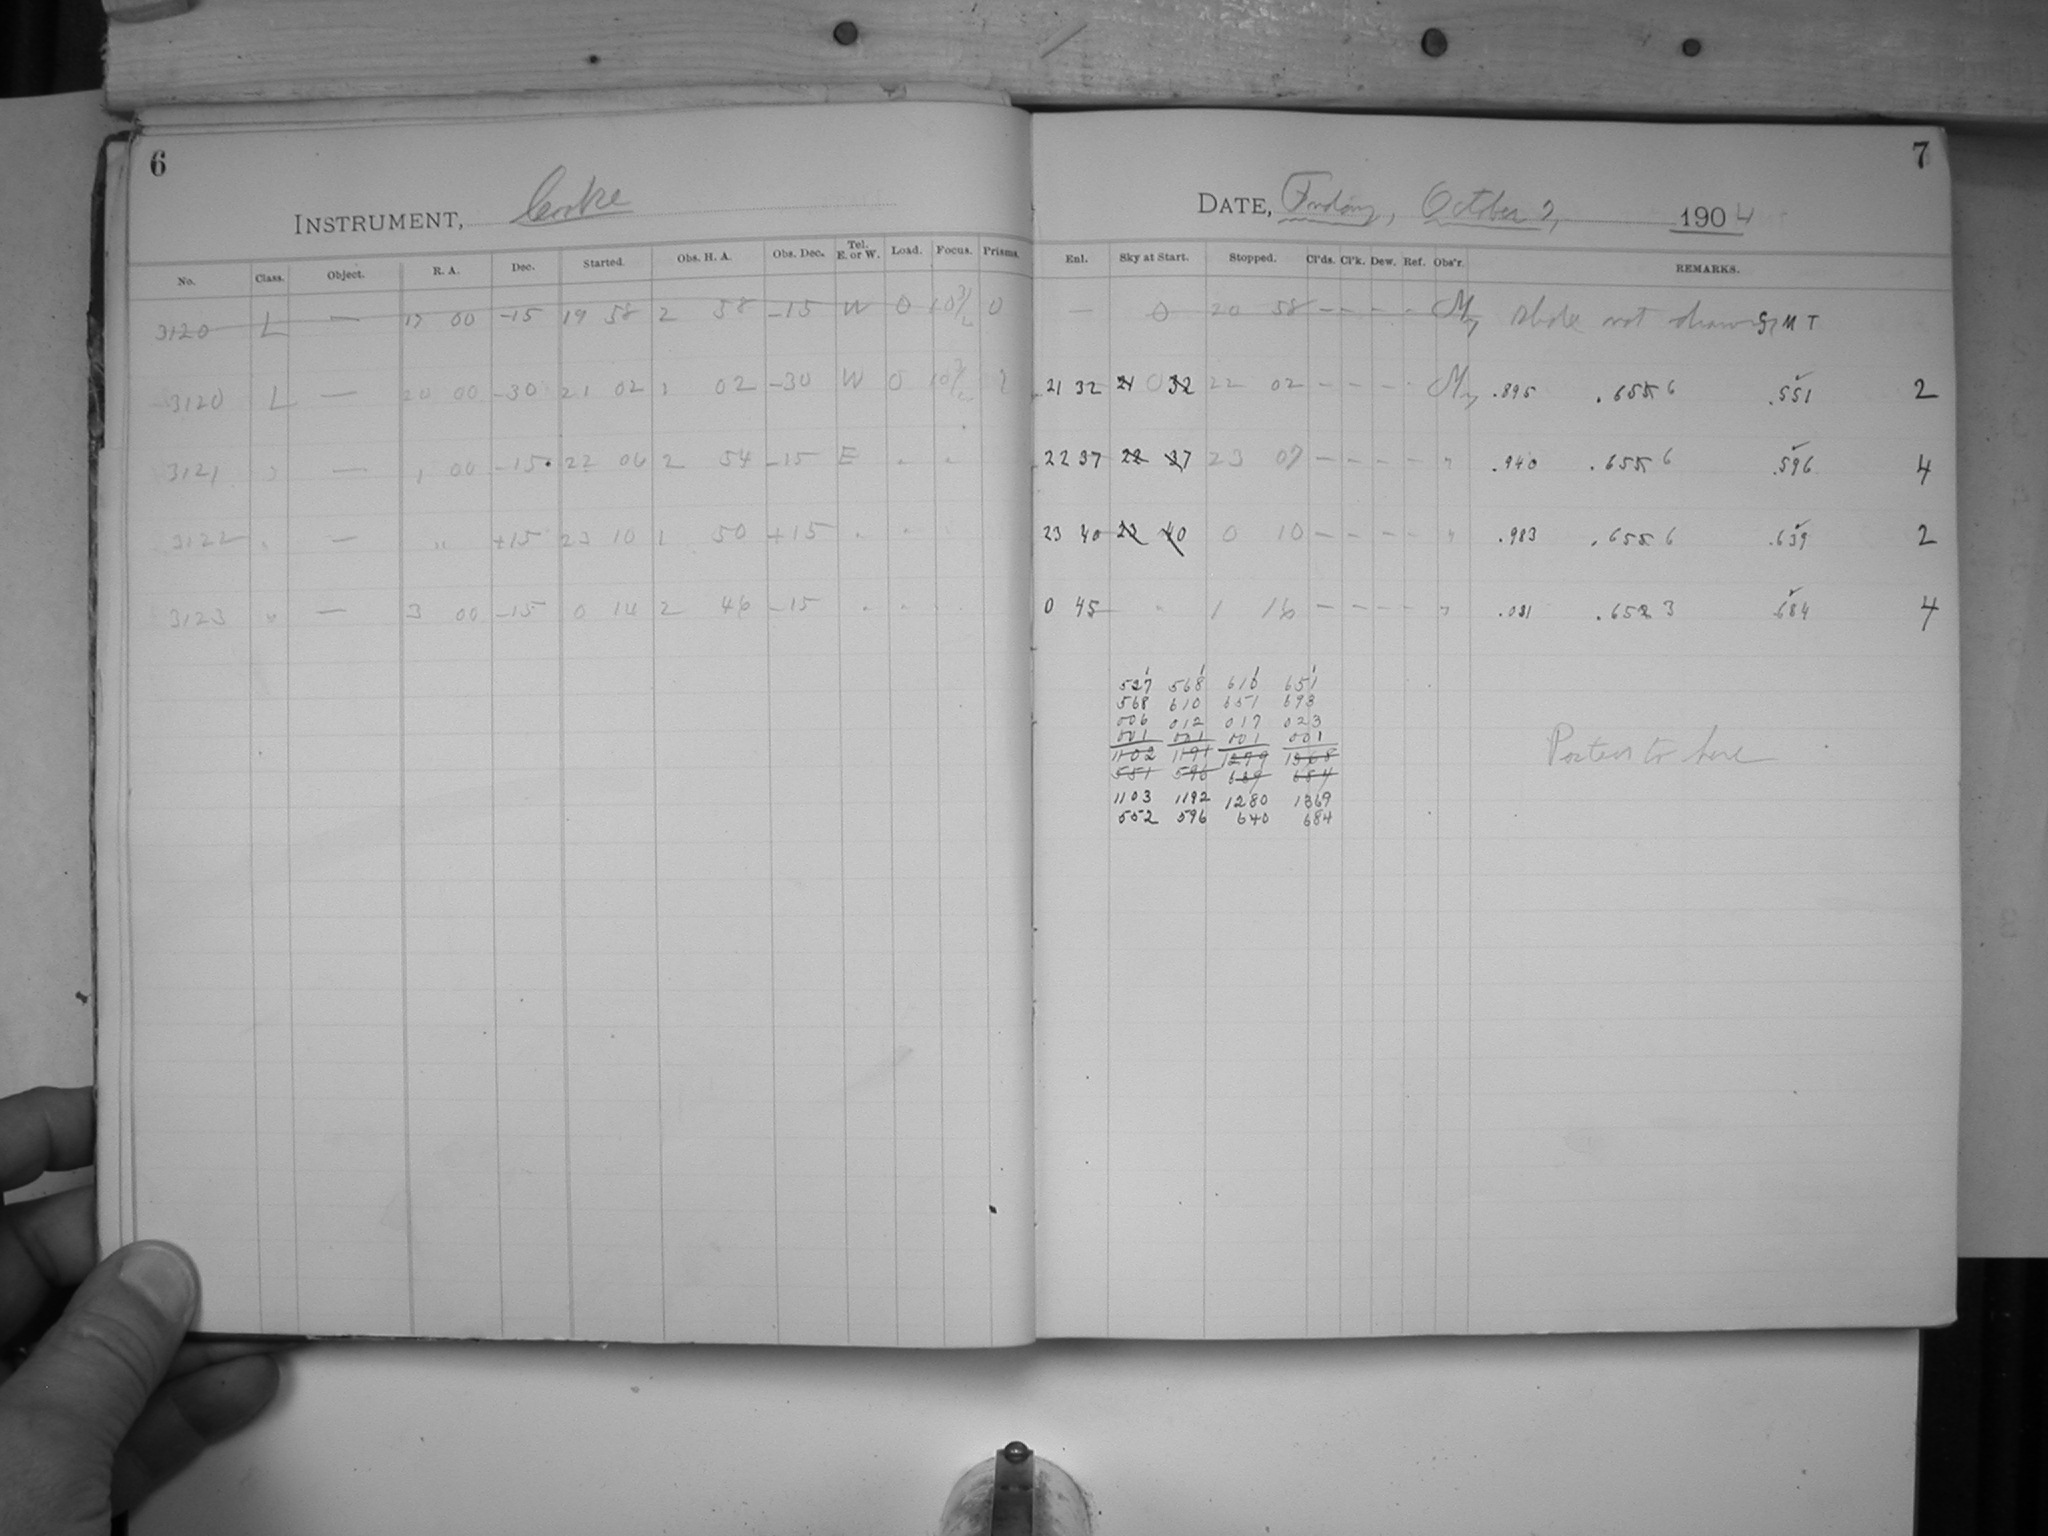 6
INSTRUMENT, Cooke
No. Class. Object. R. A. Dec. Started. Obs. H. A. Obs. Dec. Tel. E. or W. Load. Focus. Prisms.
3120 L — 17 00 -15 19 58 2 58 -15 W 0 10 3/2 0
3120 L — 20 00 -30 21 02 1 02 -30 W 0
3121 " — 1 00 -15 22 06 2 54 -15 E " "
3122 " — " +15 23 10 1 50 +15 " "
3123 " — 3 00 -15 0 14 2 46 -15 " "
7
DATE, Friday, October 7, 1904
Enl. Sky at Start. Stopped. Cl'ds. Cl'k. Dew. Ref. Obs'r. REMARKS.
— 0 20 58 - - - - My Slide not drawn G M T
21 32 21 0 32 22 02 - - - - My .895 .655 6 .551 2
22 37 22 37 23 07 - - - - " .940 .655 6 .596 4
23 40 23 40 0 10 - - - - " .983 .655 6 .639 2
0 45 " 1 16 - - - - " .031 .652 3 .684 4
527 568 610 651
568 610 651 693
006 012 017 023
001 001 001 001
1102 1191 1279 1368
551 596 639 684
1103 1192 1280 1369
552 596 640 684
to here